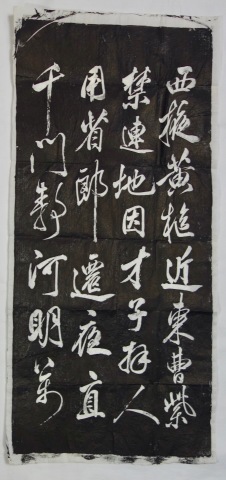 西掖黄枢近東曹紫
禁連地因才子拜人
用省郎遷夜直
千門静河明萬